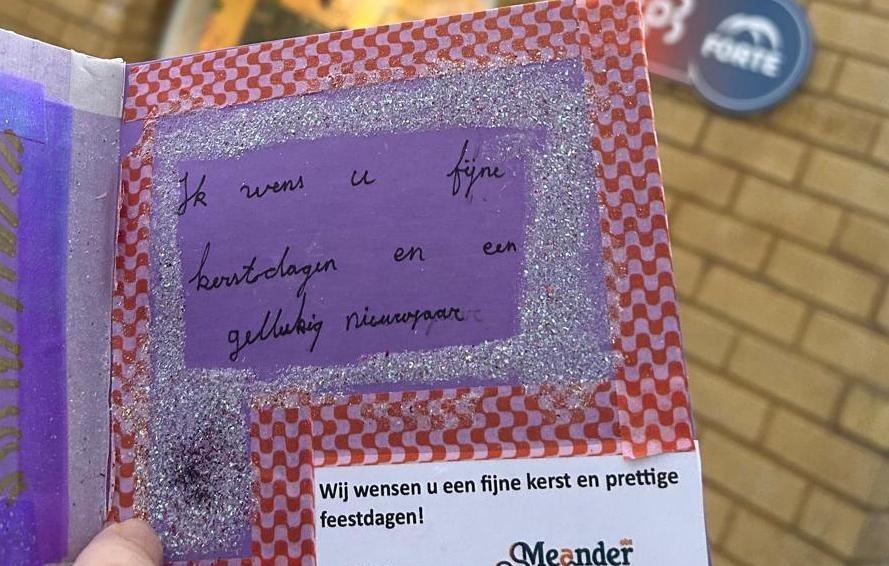 FORTE
Ik wens u fijne
kerstdagen en een
gellukig nieuwjaar
Wij wensen u een fijne kerst en prettige
feestdagen!
obs
Meander